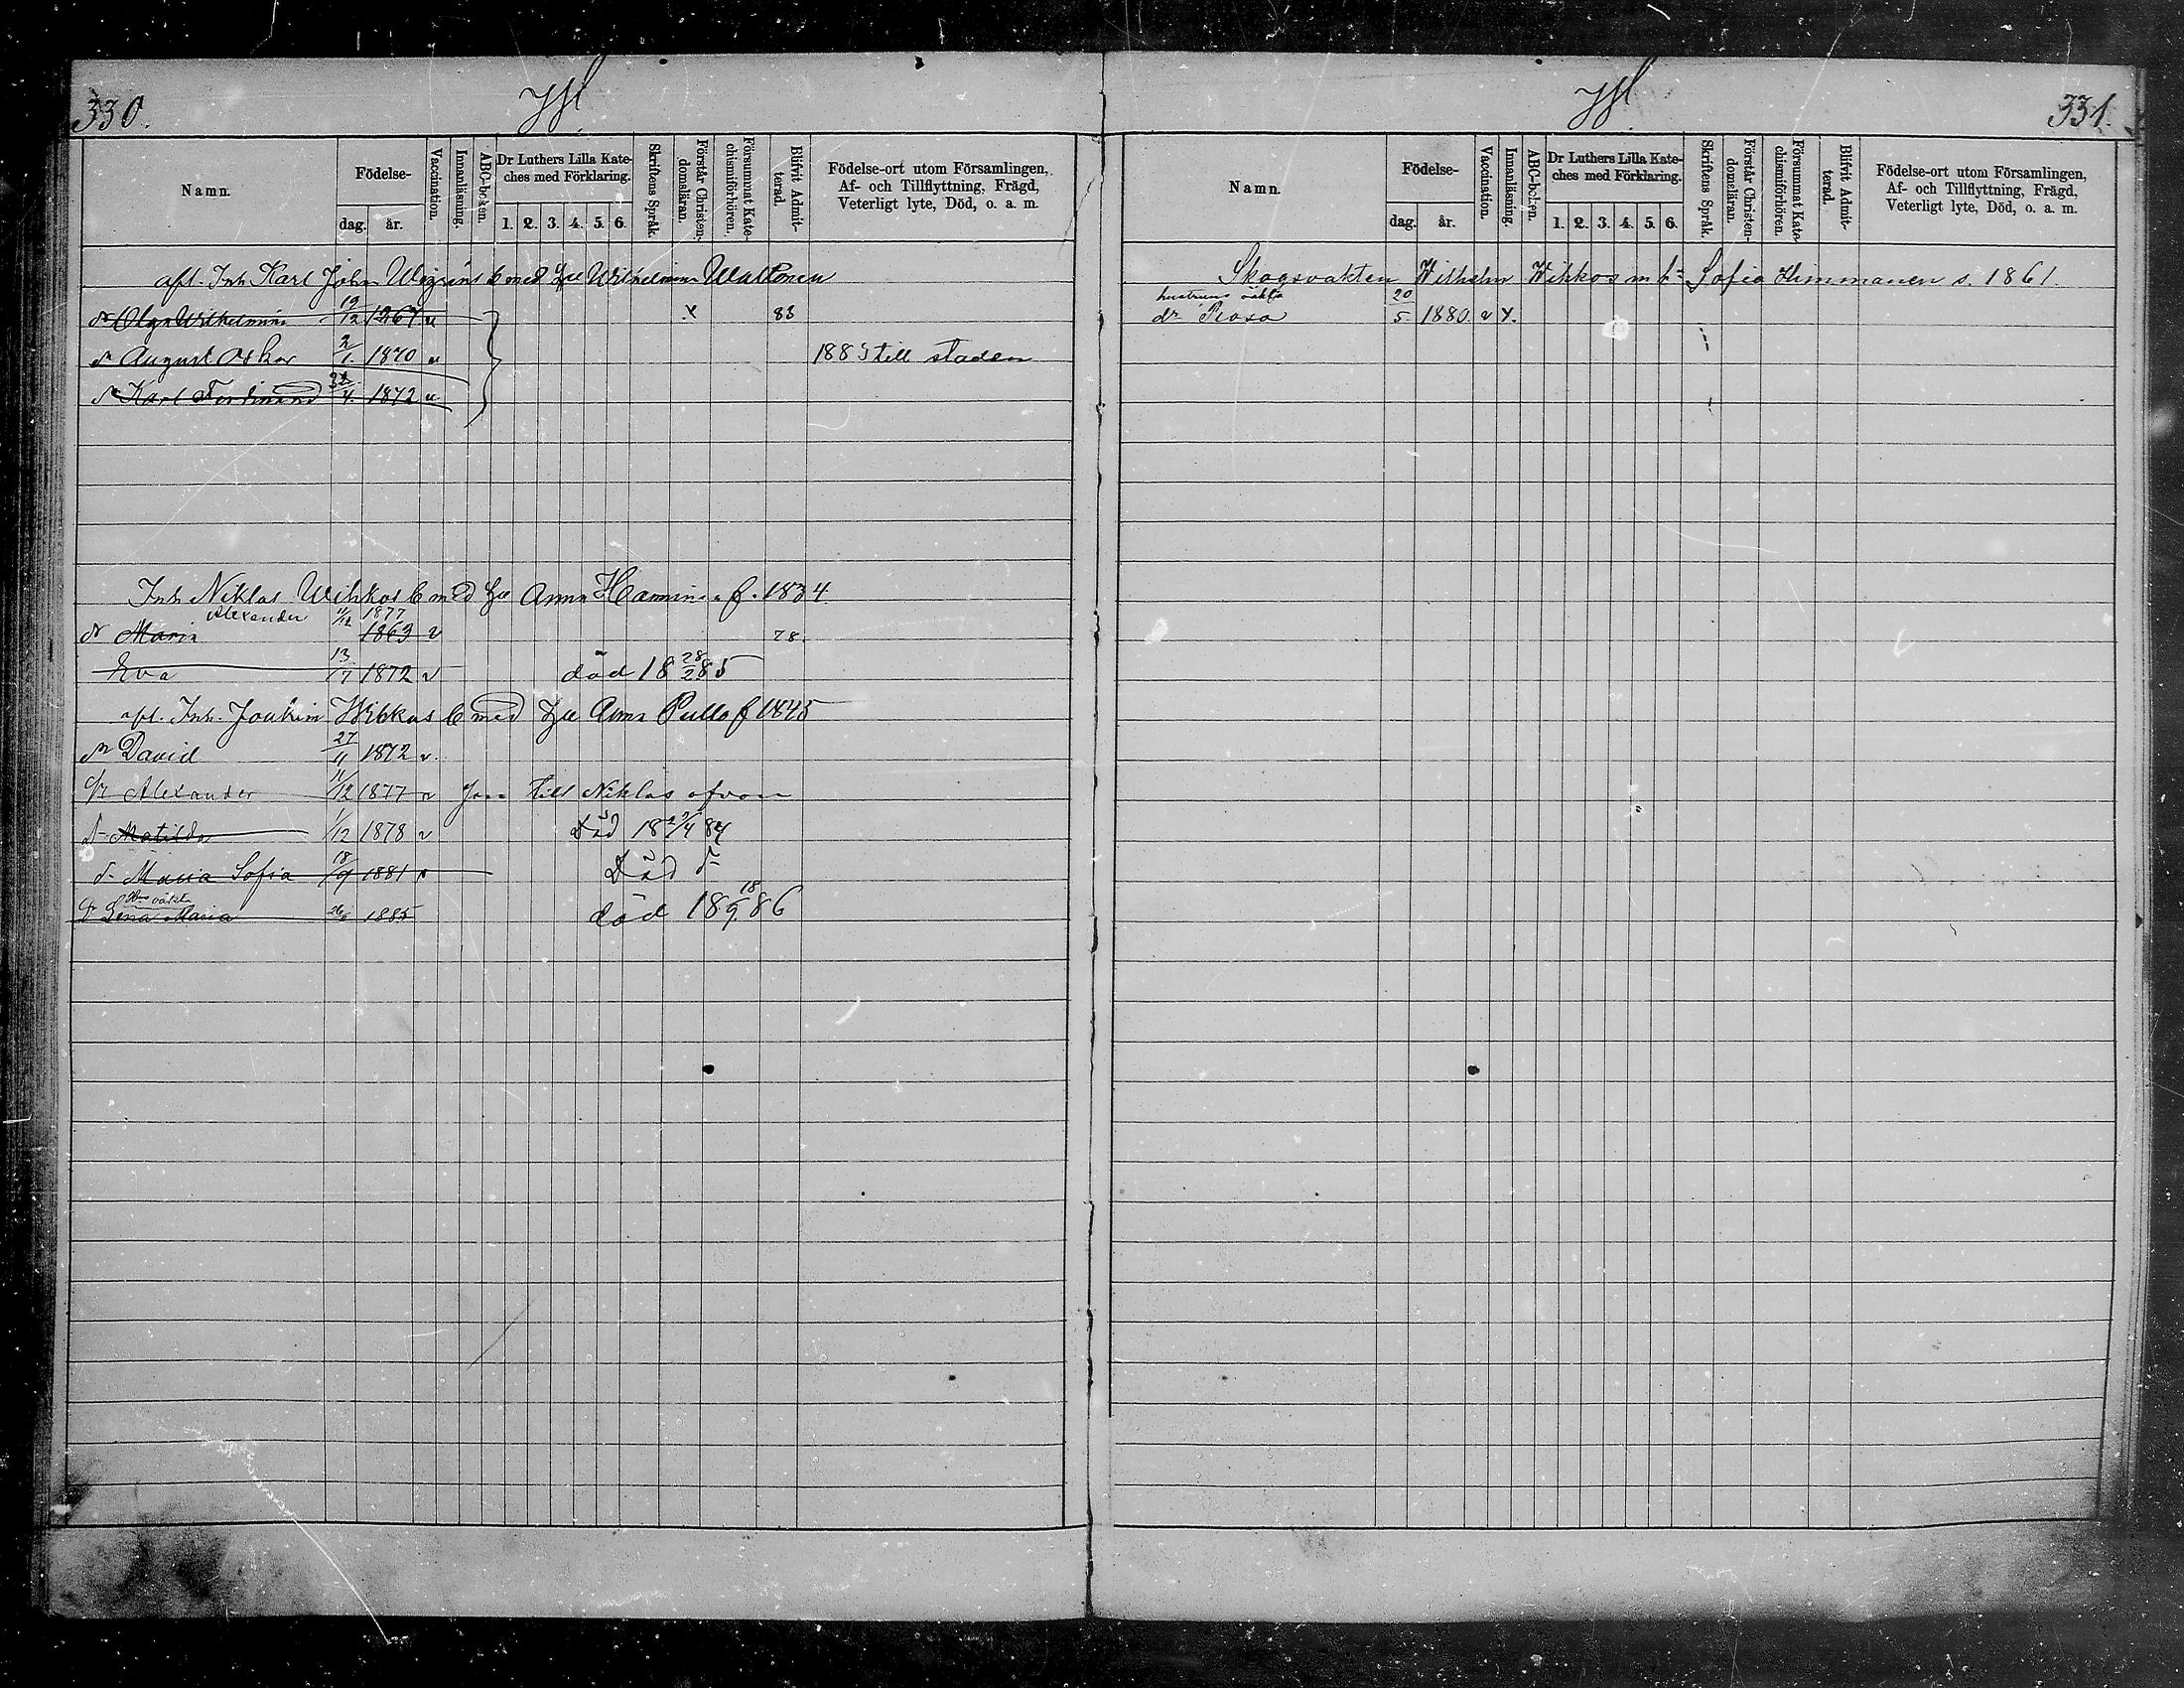 330.
Namn. Födelse- dag. år. Vaccination. Innanläsning. ABC-boken. Dr Luthers Lilla Kate-ches med Förklaring. 1. 2. 3. 4. 5. 6. Skriftens Språk. Förstår Christen-domsläran. Försummat Kate-chismiförhören. Blifvit Admit-terad. Födelse-ort utom Församlingen, Af- och Tillflyttning, Frägd, Veterligt lyte, Död, o. a. m.
Inh Karl Johan med Wilhelmina
Olga Wilhelmina 19/12 1867 x 83
August Oskar 2/1. 1870 1885 till staden
Karl Ferdinand 4. 1872
Inh Niklas Wihkos med Anna f. 1834
Alexander 11/12 1877
Maria 1863 v 78.
Eva 13/7 1872 v död 18 28/2 85
afl. Inh. Joakim Wihkos med Anna Pullo f 1845
David 27/11 1872 v.
Alexander 11/12 1877 v till Niklas ofvan
Matilda 1/12 1878 v Död 84
Maria Sofia 18/9 1881 Död
Lena Maria 1885 död 18 18/9. 86
331.
Namn. Födelse- dag. år. Vaccination. Innanläsning. ABC-boken. Dr Luthers Lilla Kate-ches med Förklaring. 1. 2. 3. 4. 5. 6. Skriftens Språk. Förstår Christen-domsläran. Försummat Kate-chismiförhören. Blifvit Admit-terad. Födelse-ort utom Församlingen, Af- och Tillflyttning, Frägd, Veterligt lyte, Död, o. a. m.
Skogsvakten Wilhelm Wihkos m h= Sofia Himmanen s. 1861.
hustruns oäkta
dr Rosa 20/5. 1880. v x.